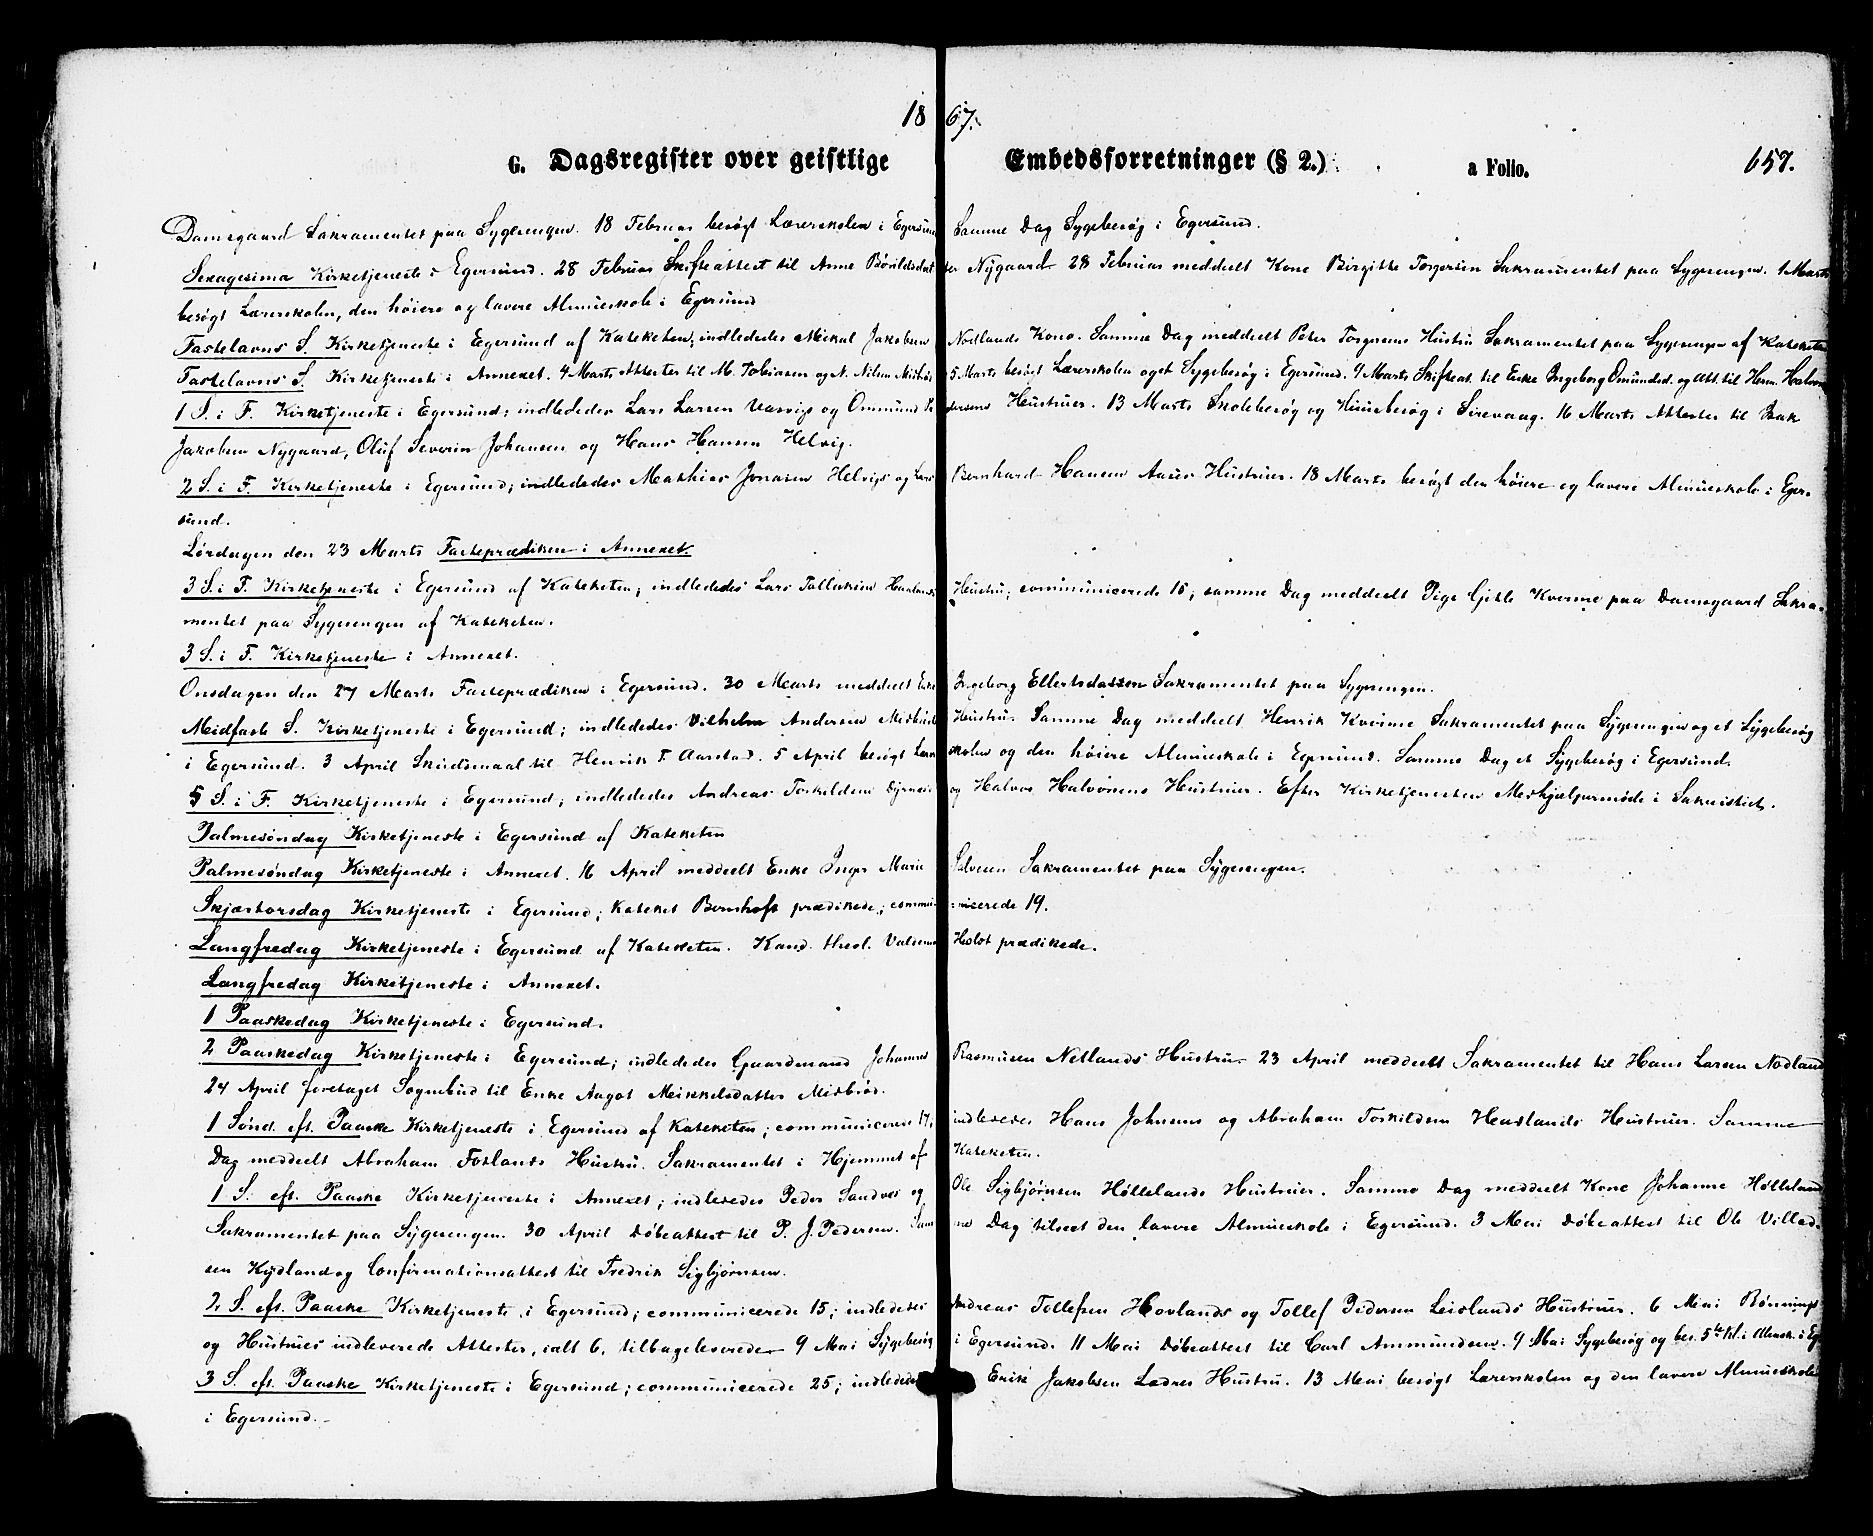 1867.
G. Dagsregister over geistlige Embedsforretninger (§ 2.) a Folio. 657.
Damsgaard Sakramentet paa Sygesengen. 18 Februar besøgt Lærerskolen i Egersund Samme Dag Sygebesøg i Egersund.
Sexagesima Kirketjeneste i Egersund. 28 Februar Skifteattest til Anne Nygaard 28 Februar meddelt Kone Birgitte Torgersen Sakramentet paa Sygesengen. 1 Marts
besøgt Lærerskolen, den høiere og lavere Almueskole i Egersund
Fastelavns S. Kirketjeneste i Egersund af Kateketen; indlededes Mikal Jakobsen Nodlands Kone. Samme Dag meddeelt Peter Torgersens Hustru Sakramentet paa Sygesengen af Kateketen
Fastelavns S. Kirketjeneste i Annexet. 4 Marts Attester til M. Tobiasen og N. Nilsen 5 Marts besøgt Lærerskolen og et Sygebesøg i Egersund. 9 Marts Skifteat. til Enke Ingeborg Omundsd. og Att. til
1 S. i F. Kirketjeneste i Egersund; indledede Lars Larsen og Ommund Hustruer. 13 Marts Skolebesøg og Huusbesøg i Sirevaag. 16 Marts Attester til Isak
Jakobsen Nygaard, Oluf Severin Johansen og Hans Hansen Helvig.
2 S. i F. Kirketjeneste i Egersund; indlededes Mathias Jonasen Helvigs og Lars Bernhard Hansen Hustruer. 18 Marts besøgt den høiere og lavere Almueskole i Eger-
sund.
Lørdagen den 23 Marts Fasteprædiken i Annexet.
3 S. i F. Kirketjeneste i Egersund af Kateketen; indlededes Lars Tallaksen Hustru; communicerede 15; samme Dag meddeelt Pige Gitle Kverme paa Damsgaard Sakra-
mentet paa Sygesengen af Kateketen.
3 S. i F. Kirketjeneste i Annexet.
Onsdagen den 27 Marts Fasteprædiken i Egersund. 30 Marts meddelt Enke Ingeborg Ellertsdatter Sakramentet paa Sygesengen.
Midfaste S. Kirketjeneste i Egersund; indlededes Vilhelm Andersen Hustru. Samme Dag meddelt Henrik Kverme Sakramentet paa Sygesengen og et Sygebesøg
i Egersund. 3 April Skudsmaal til Henrik T. Aarstad. 5 April besøgt Lærerskolen og den høiere Almueskole i Egersund. Samme Dag et Sygebesøg i Egersund.
5 S. i F. Kirketjeneste i Egersund; indlededes Andreas Torkildsen og Halvor Halvorsens Hustruer. Efter Kirketjenesten Medhjælpermøde i Sakristiet.
Palmesøndag Kirketjeneste i Egersund af Kateketen
Palmesøndag Kirketjeneste i Annexet. 16 April meddeelt Enke Inger Marie Salvesen Sakramentet paa Sygesengen.
Skjærtorsdag Kirketjeneste i Egersund; Kateket Bernhoft prædikede; communicerede 19.
Langfredag Kirketjeneste i Egersund af Kateketen. Kand. theol. Holst prædikede.
Langfredag Kirketjeneste i Annexet.
1 Paaskedag Kirketjeneste i Egersund.
2 Paaskedag Kirketjeneste i Egersund; indlededes Gaardmand Johannes Rasmusen Netlands Hustru. 23 April meddeelt Sakramentet til Hans Larsen Nodland
24 April foretaget Sognebud til Enke Aagot Mikkelsdatter
1 Sønd. eft. Paaske Kirketjeneste i Egersund af Kateketen; communicerede 17, indlededes Hans Johnsens og Abraham Torkildsen Hustruer. Samme
Dag meddeelt Abraham Foslands Hustru Sakramentet i Hjemmet af Kateketen.
1 S. eft. Paaske Kirketjeneste i Annexet; indlededes Peder Sandves og Ole Sigbjørnsen Høllelands Hustruer. Samme Dag meddeelt Kone Johanne Hølleland
Sakramentet paa Sygesengen. 30 April Døbeattest til P. J. Pedersen. Samme Dag tilseet den lavere Almueskole i Egersund. 3 Mai Døbeattest til Ole Villad-
sen Kydland og Confirmationsattest til Fredrik Sigbjørnsen.
2 S. eft. Paaske Kirketjeneste i Egersund; communicerede 15; indlededes Andreas Tollefsen Hovlands og Tollef Pedersen Leidlands Hustruer. 6 Mai
og Hustrues indleverede Attester, ialt 6, tilbageleverede 9 Mai Sygebesøg i Egersund. 11 Mai Døbeattest til Carl Ammundsen. 9 Mai Sygebesøg og bes. 5te Kl. i Almsk. i Eg
3 S. eft. Paaske Kirketjeneste i Egersund; communicerede 25; indlededes Erik Jakobsen Hustru. 13 Mai besøgt Lærerskolen og den lavere Almueskole
i Egersund.